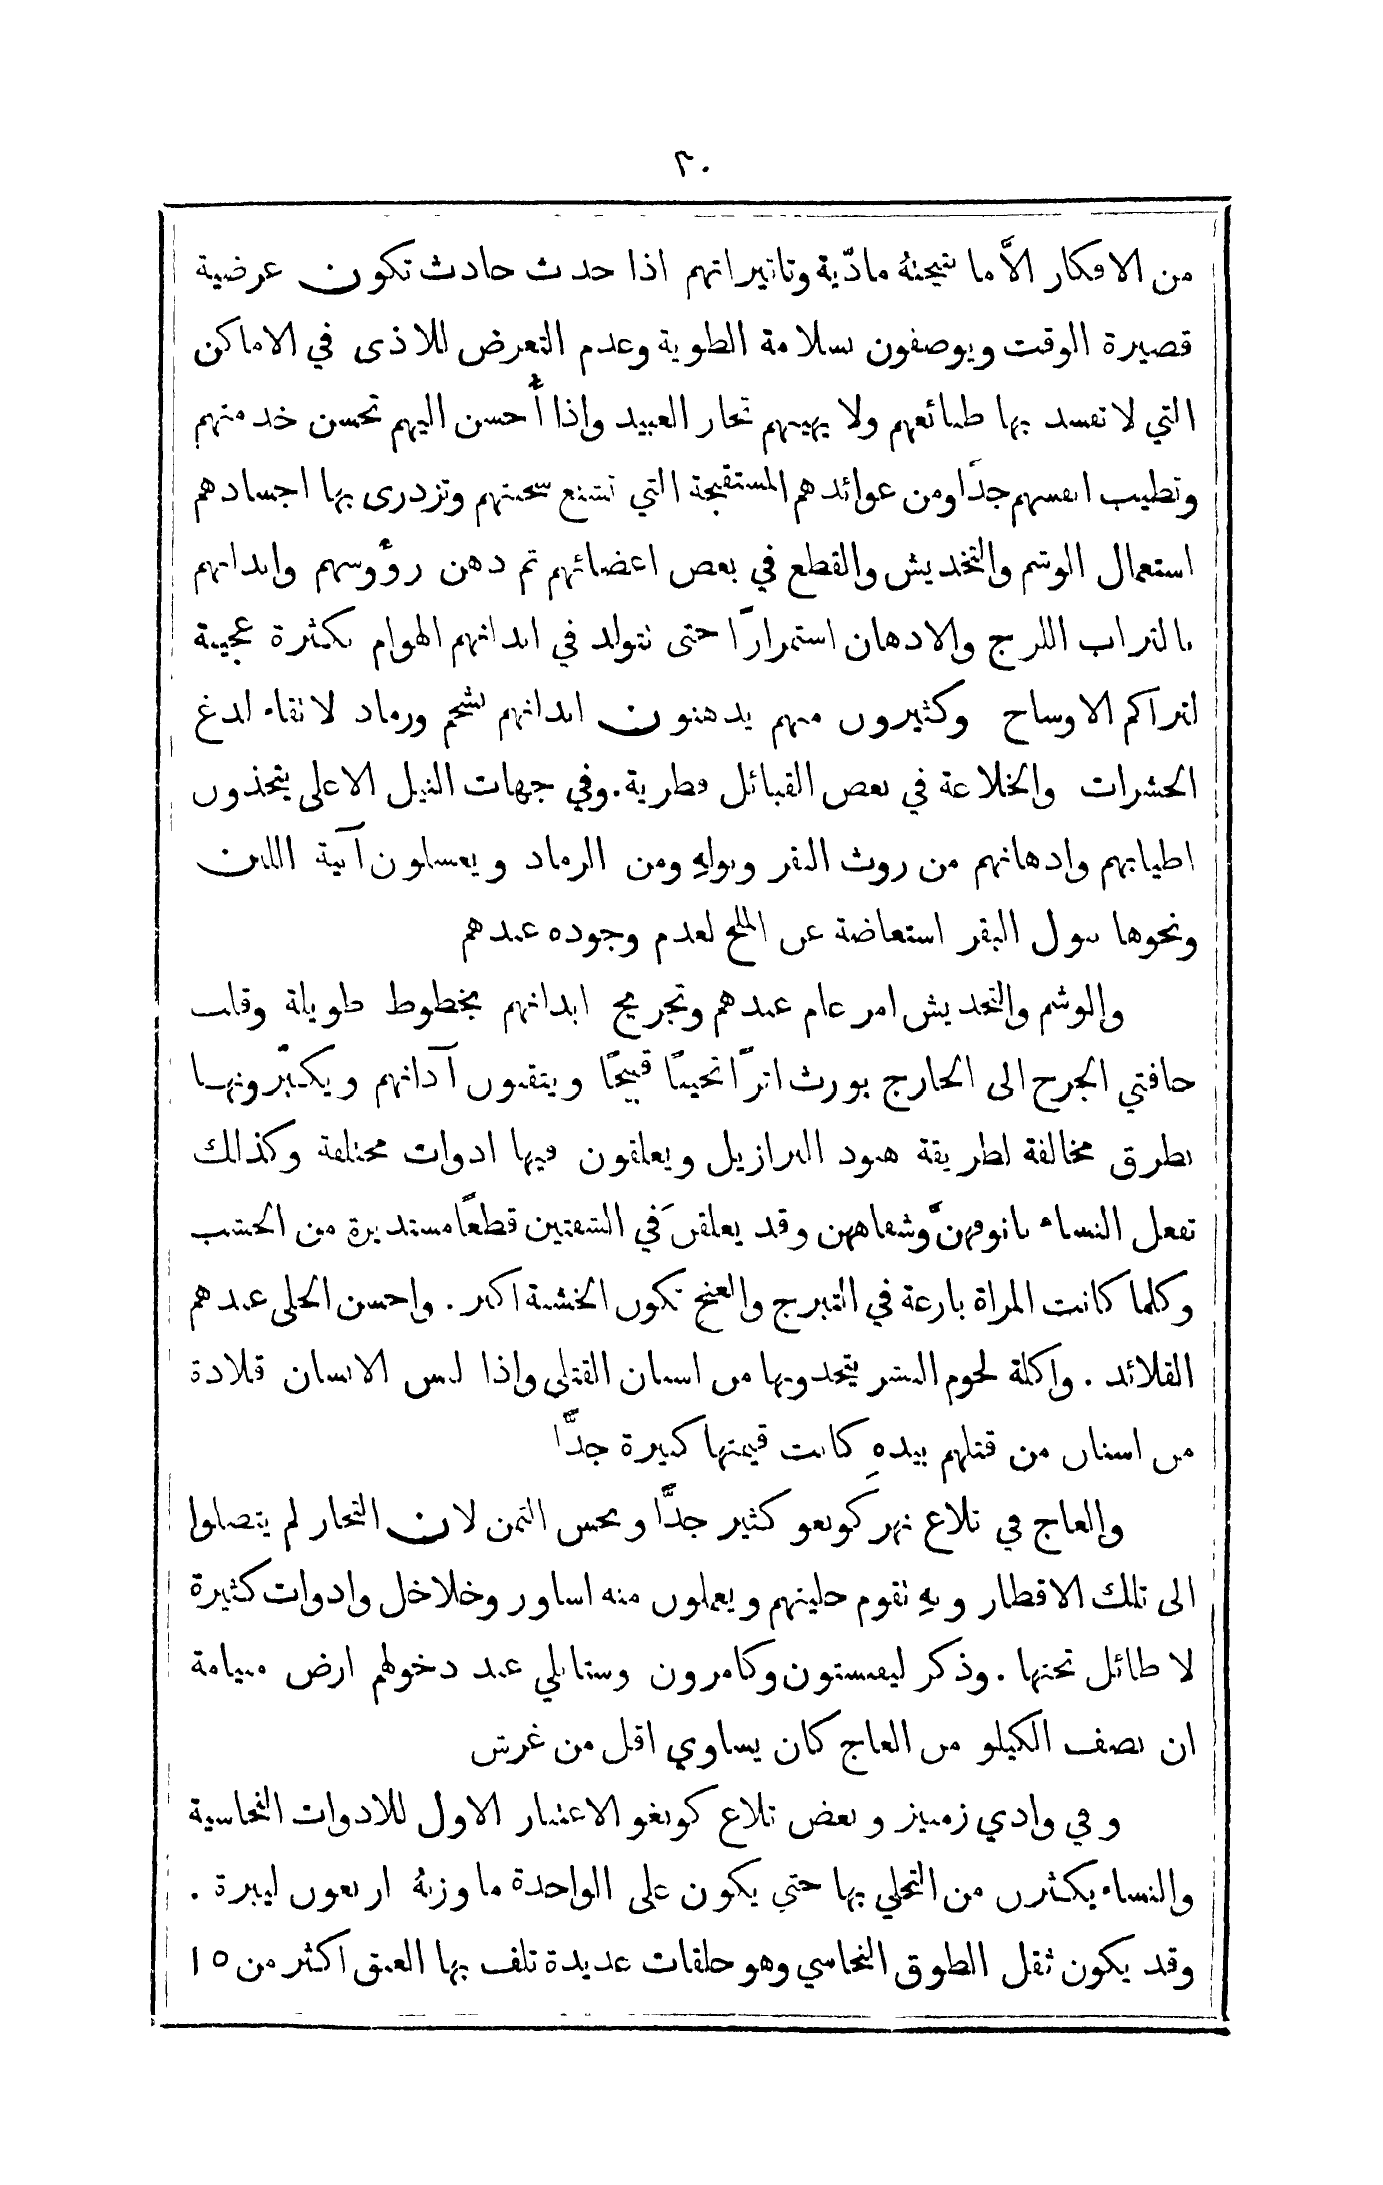 ٢٠
من الافكار الاَّ ما نتيجتهُ مادّية وتاثيراتهم اذا حدث حادث تكون عرضية
قصيرة الوقت ويوصفون بسلامة الطوية وعدم التعرض للاذى في الاماكن
التي لا تفسد بها طبائعهم ولا يهينهم تجار العبيد واذا أُحسن اليهم تحسن خدمتهم
وتطيب انفسهم جدًّا ومن عوائدهم المستقبحة التي تشنع سحنتهم وتزدرى بها اجسادهم
استعمال الوشم والتخديش والقطع في بعض اعضائهم ثم دهن رؤُوسهم وابدانهم
بالتراب اللزج والادهان استمرارًا حتى تتولد في ابدانهم الهوام بكثرة عجيبة
لتراكم الاوساخ وكثيرون منهم يدهنون ابدانهم بشحم ورماد لاتقاء لدغ
الحشرات والخلاعة في بعض القبائل فطرية. وفي جهات النيل الاعلى يتخذون
اطيابهم وادهانهم من روث البقر وبولهِ ومن الرماد ويغسلون آنية اللبن
ونحوها ببول البقر استعاضة عن الملح لعدم وجوده عندهم
والوشم والتخديش امر عام عندهم وتجريح ابدانهم بخطوط طويلة وقلب
حافتي الجرح الى الخارج يورث اثرًا ثخينًا قبيحًا ويثقبون آذانهم ويكبّرونهـا
بطرق مخالفة لطريقة هنود البرازيل ويعلقون فيها ادوات مختلفة وكذلك
تفعل النساء بانوفهنَّ وشفاههن وقد يعلقنَ في الشفتين قطعًا مستديرة من الخشب
وكلما كانت المراة بارعة في التبرج والغنج تكون الخشبة اكبر. واحسن الحلى عندهم
القلائد. واكلة لحوم البشر يتخذونها من اسنان القتلى واذا لبس الانسان قلادة
من اسنان من قتلهم بيدهِ كانت قيمتها كبيرة جدًّا
والعاج في تلاع نهر كونغو كثير جدًّا وبخس الثمن لان التجار لم يتصلوا
الى تلك الاقطار وبهِ تقوم حليتهم ويعملون منه اساور وخلاخل وادوات كثيرة
لا طائل تحتها. وذكر ليفنستون وكامرون وستانلي عند دخولهم ارض منيامة
ان نصف الكيلو من العاج كان يساوي اقل من غرش
وفي وادي زمبيز وبعض تلاع كونغو الاعتبار الاول للادوات النحاسية
والنساء يكثرن من التحلي بها حتي يكون على الواحدة ما وزنهُ اربعون ليبرة.
وقد يكون ثقل الطوق النحاسي وهو حلقات عديدة تلف بها العنق اكثر من ١٥